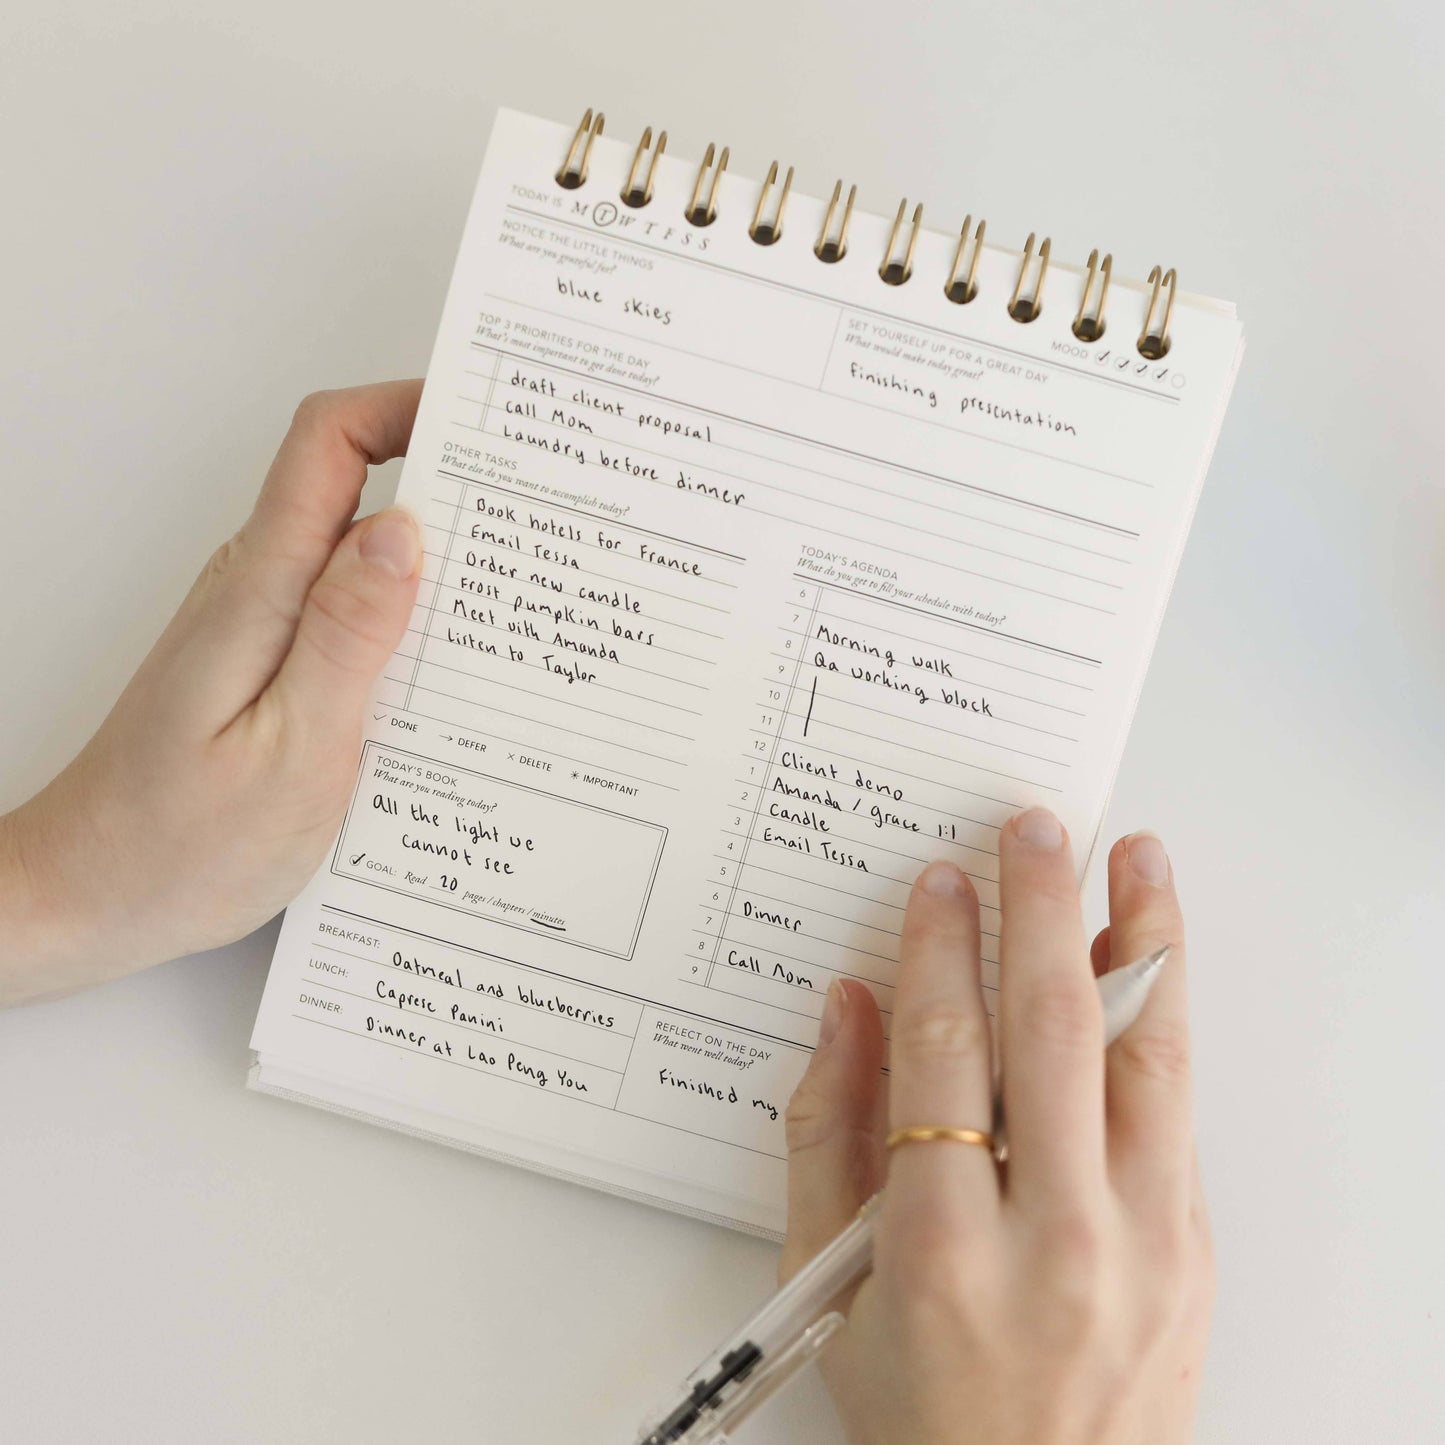 TODAY IS M T W T F S S
MOOD
NOTICE THE LITTLE THINGS
What are you grateful for?
blue skies
SET YOURSELF UP FOR A GREAT DAY
What would make today great?
finishing presentation
TOP 3 PRIORITIES FOR THE DAY
What's most important to get done today?
draft client proposal
call Mom
Laundry before dinner
OTHER TASKS
What else do you want to accomplish today?
Book hotels for France
Email Tessa
Order new candle
Frost pumpkin bars
Meet with Amanda
Listen to Taylor
DONE DEFER DELETE IMPORTANT
TODAY'S AGENDA
What do you get to fill your schedule with today?
6
7 Morning walk
8 Qa working block
9
10
11
12 Client demo
1 Amanda / Grace 1:1
2 Candle
3 Email Tessa
4
5
6 Dinner
7
8 Call Mom
9
TODAY'S BOOK
What are you reading today?
all the light we
cannot see
GOAL: Read 20 pages / chapters / minutes
BREAKFAST: Oatmeal and blueberries
LUNCH: Caprese Panini
DINNER: Dinner at Lao Peng You
REFLECT ON THE DAY
What went well today?
Finished my